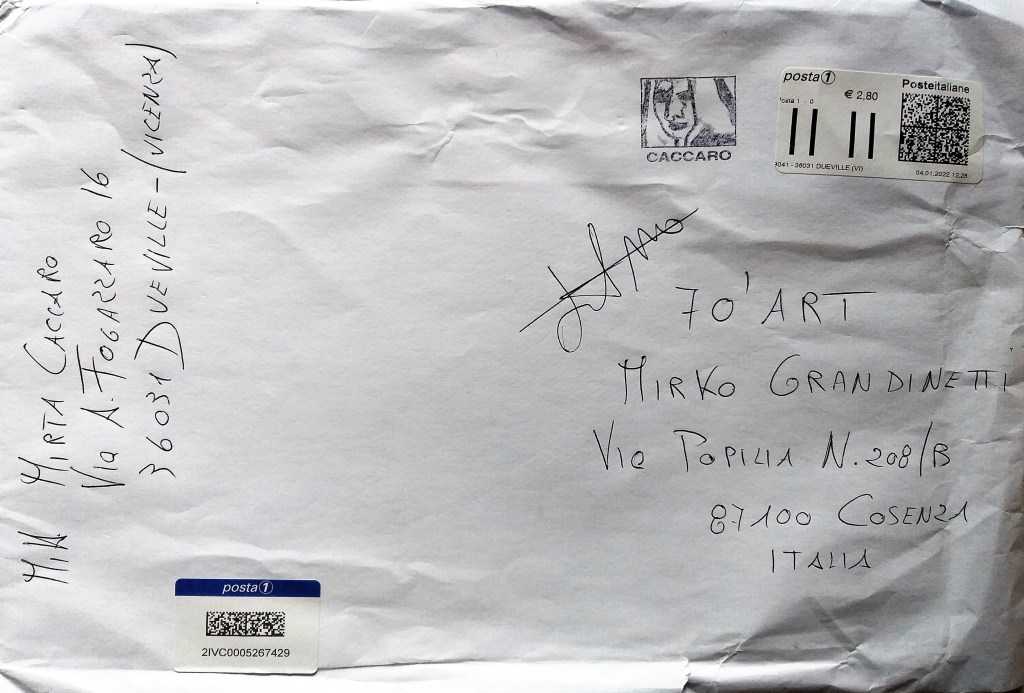 Mi.W. MIRTA CACCARO
Via A. FOGAZZARO 16
36031 DUEVILLE - (VICENZA)
CACCARO
posta 1
Posteitaliane
€ 2,80
osta 1 - 0
9041 - 36031 DUEVILLE (VI)
04.01.2022 12.28
70' ART
MIRKO GRANDINETTI
Via POPILIA N. 208/B
87100 COSENZA
ITALIA
posta 1
2IVC0005267429